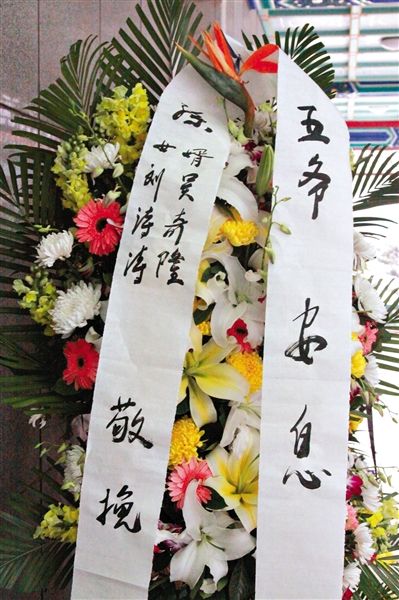 五爷安息
孙
婿吴奇隆
女刘诗诗
敬挽